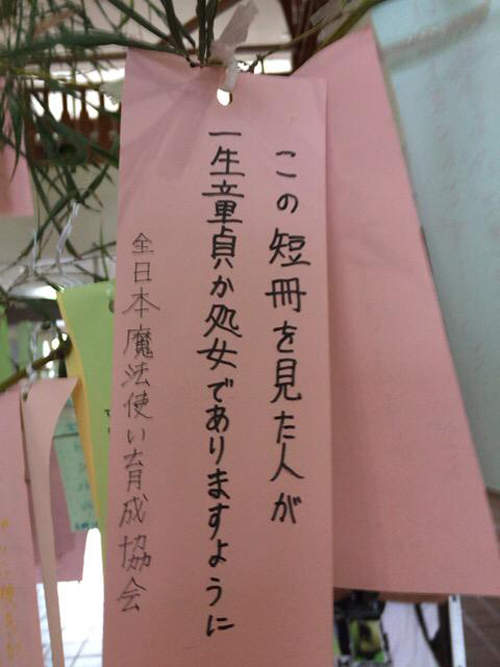 この短冊を見た人が
一生童貞か処女でありますように
全日本魔法使い育成協会